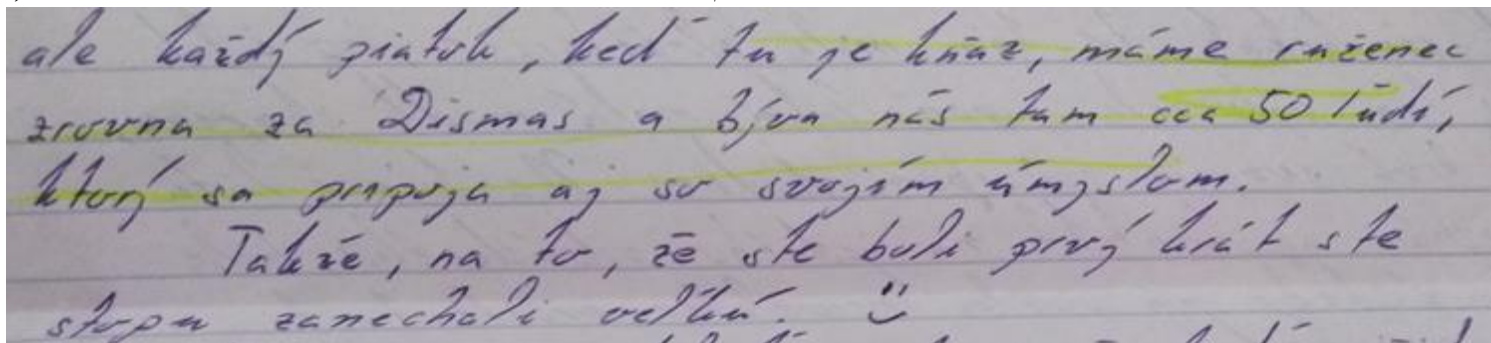 ale každý piatok, keď tu je kňaz, máme ruženec
zrovna za Dismas a býva nás tam cca 50 ľudí,
ktorý sa pripoja aj so svojím úmyslom.
Takže, na to, že ste boli prvý krát ste
stopu zanechali veľkú. ü